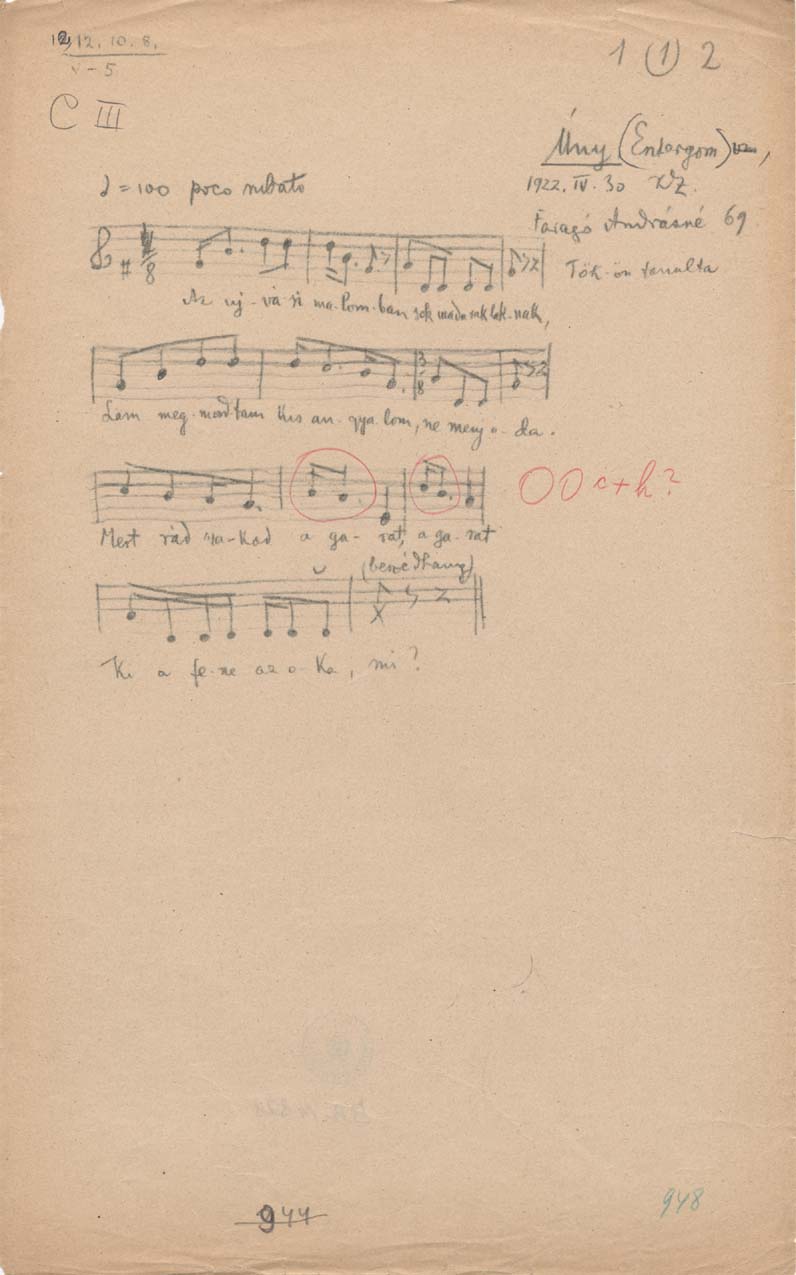 12, 12. 10. 8.
v - 5
1 (1) 2
C III
Úny (Esztergom)
1922. IV. 30 KZ.
♩ = 100 poco rubato
Faragó Andrásné 69
8
Tök-ön tanulta
Az uj-vá-si ma-lom-ban sok madarak lak-nak,
3
8
Lám meg-mondtam kis an-gya-lom, ne menj o-da.
Mert rád sza-kad a ga-rat, a ga-rat
c + h?
(beszédhang)
Ki a fe-ne az o-ka, mi?
944
948